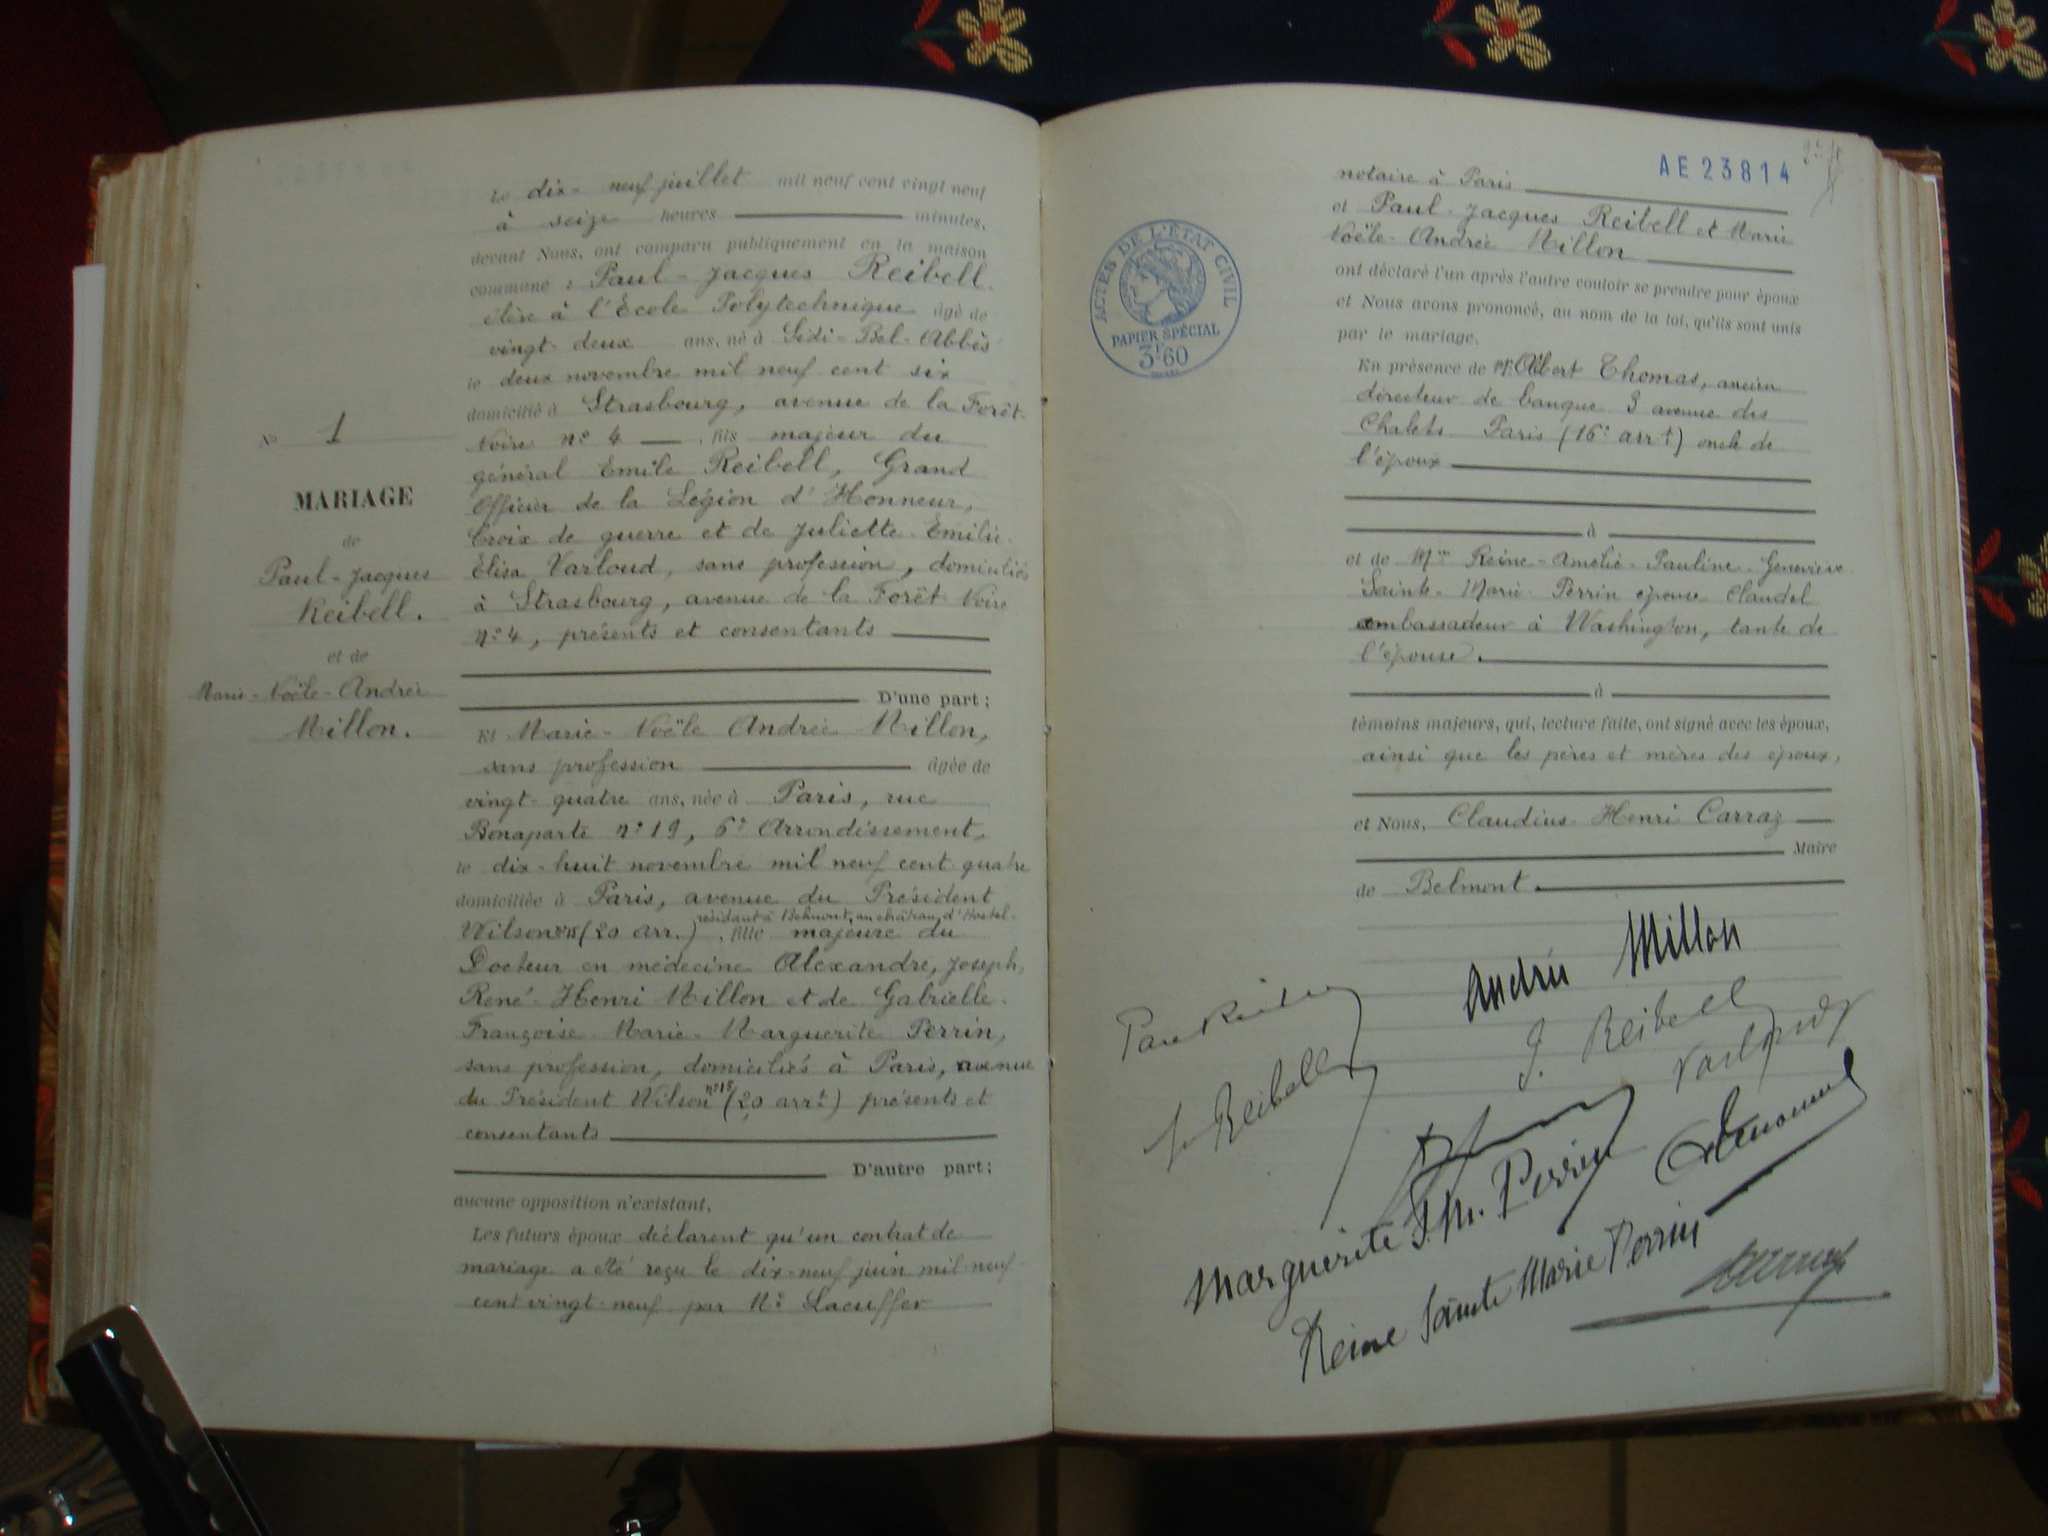 N° 1
MARIAGE
de
Paul-Jacques
Reibell.
et de
Marie-Noële-Andrée
Millon.
le dix-neuf juillet mil neuf cent vingt neuf
à seize heures minutes,
devant Nous, ont comparu publiquement en la maison
commune : Paul-Jacques Reibell
élève à l'École Polytechnique âgé de
vingt-deux ans, né à Sidi-Bel-Abbès
le deux novembre mil neuf cent six
domicilié à Strasbourg, avenue de la Forêt
Noire n° 4, fils majeur du
général Emile Reibell, Grand
Officier de la Légion d'Honneur,
Croix de guerre et de Juliette-Emilie-
Élisa Varloud, sans profession, domiciliés
à Strasbourg, avenue de la Forêt Noire
n° 4, présents et consentants
D'une part ;
Et Marie-Noële Andrée Millon,
sans profession âgée de
vingt-quatre ans, née à Paris, rue
Bonaparte n° 19, 6e Arrondissement,
le dix-huit novembre mil neuf cent quatre
domiciliée à Paris, avenue du Président
résidant à Belmont, au château d'Hostel
Wilson (20 arr.), fille majeure du
Docteur en médecine Alexandre, Joseph,
René-Henri Millon et de Gabrielle-
Françoise-Marie-Marguerite Perrin,
sans profession, domiciliés à Paris, avenue
du Président Wilson n° 18 (20 arrt) présents et
consentants
D'autre part ;
aucune opposition n'existant,
Les futurs époux déclarent qu'un contrat de
mariage a été reçu le dix-neuf juin mil neuf
cent vingt-neuf par Me Laeuffer
AE 23814
ACTES DE L'ÉTAT CIVIL
PAPIER SPÉCIAL
3F60
notaire à Paris
et Paul-Jacques Reibell et Marie
Noële-Andrée Millon
ont déclaré l'un après l'autre vouloir se prendre pour époux
et Nous avons prononcé, au nom de la loi, qu'ils sont unis
par le mariage.
En présence de Mr Albert Thomas, ancien
directeur de banque 3 avenue des
Chalets Paris (16e arrt) oncle de
l'époux
à
et de Mme Reine-Amélie-Pauline-Geneviève
Sainte-Marie-Perrin épouse Claudel
ambassadeur à Washington, tante de
l'épouse.
à
témoins majeurs, qui, lecture faite, ont signé avec les époux,
ainsi que les pères et mères des époux,
et Nous, Claudius Henri Carraz
Maire
de Belmont
Andrée Millon
J. Reibell
Varloud
Reibell
Marguerite Perrin
Reine Sainte Marie Perrin